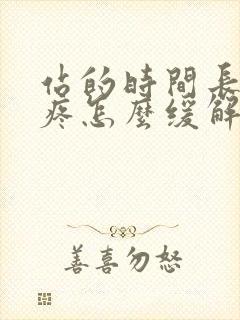 佔的時間長
疼怎麼緩解
善喜勿怒